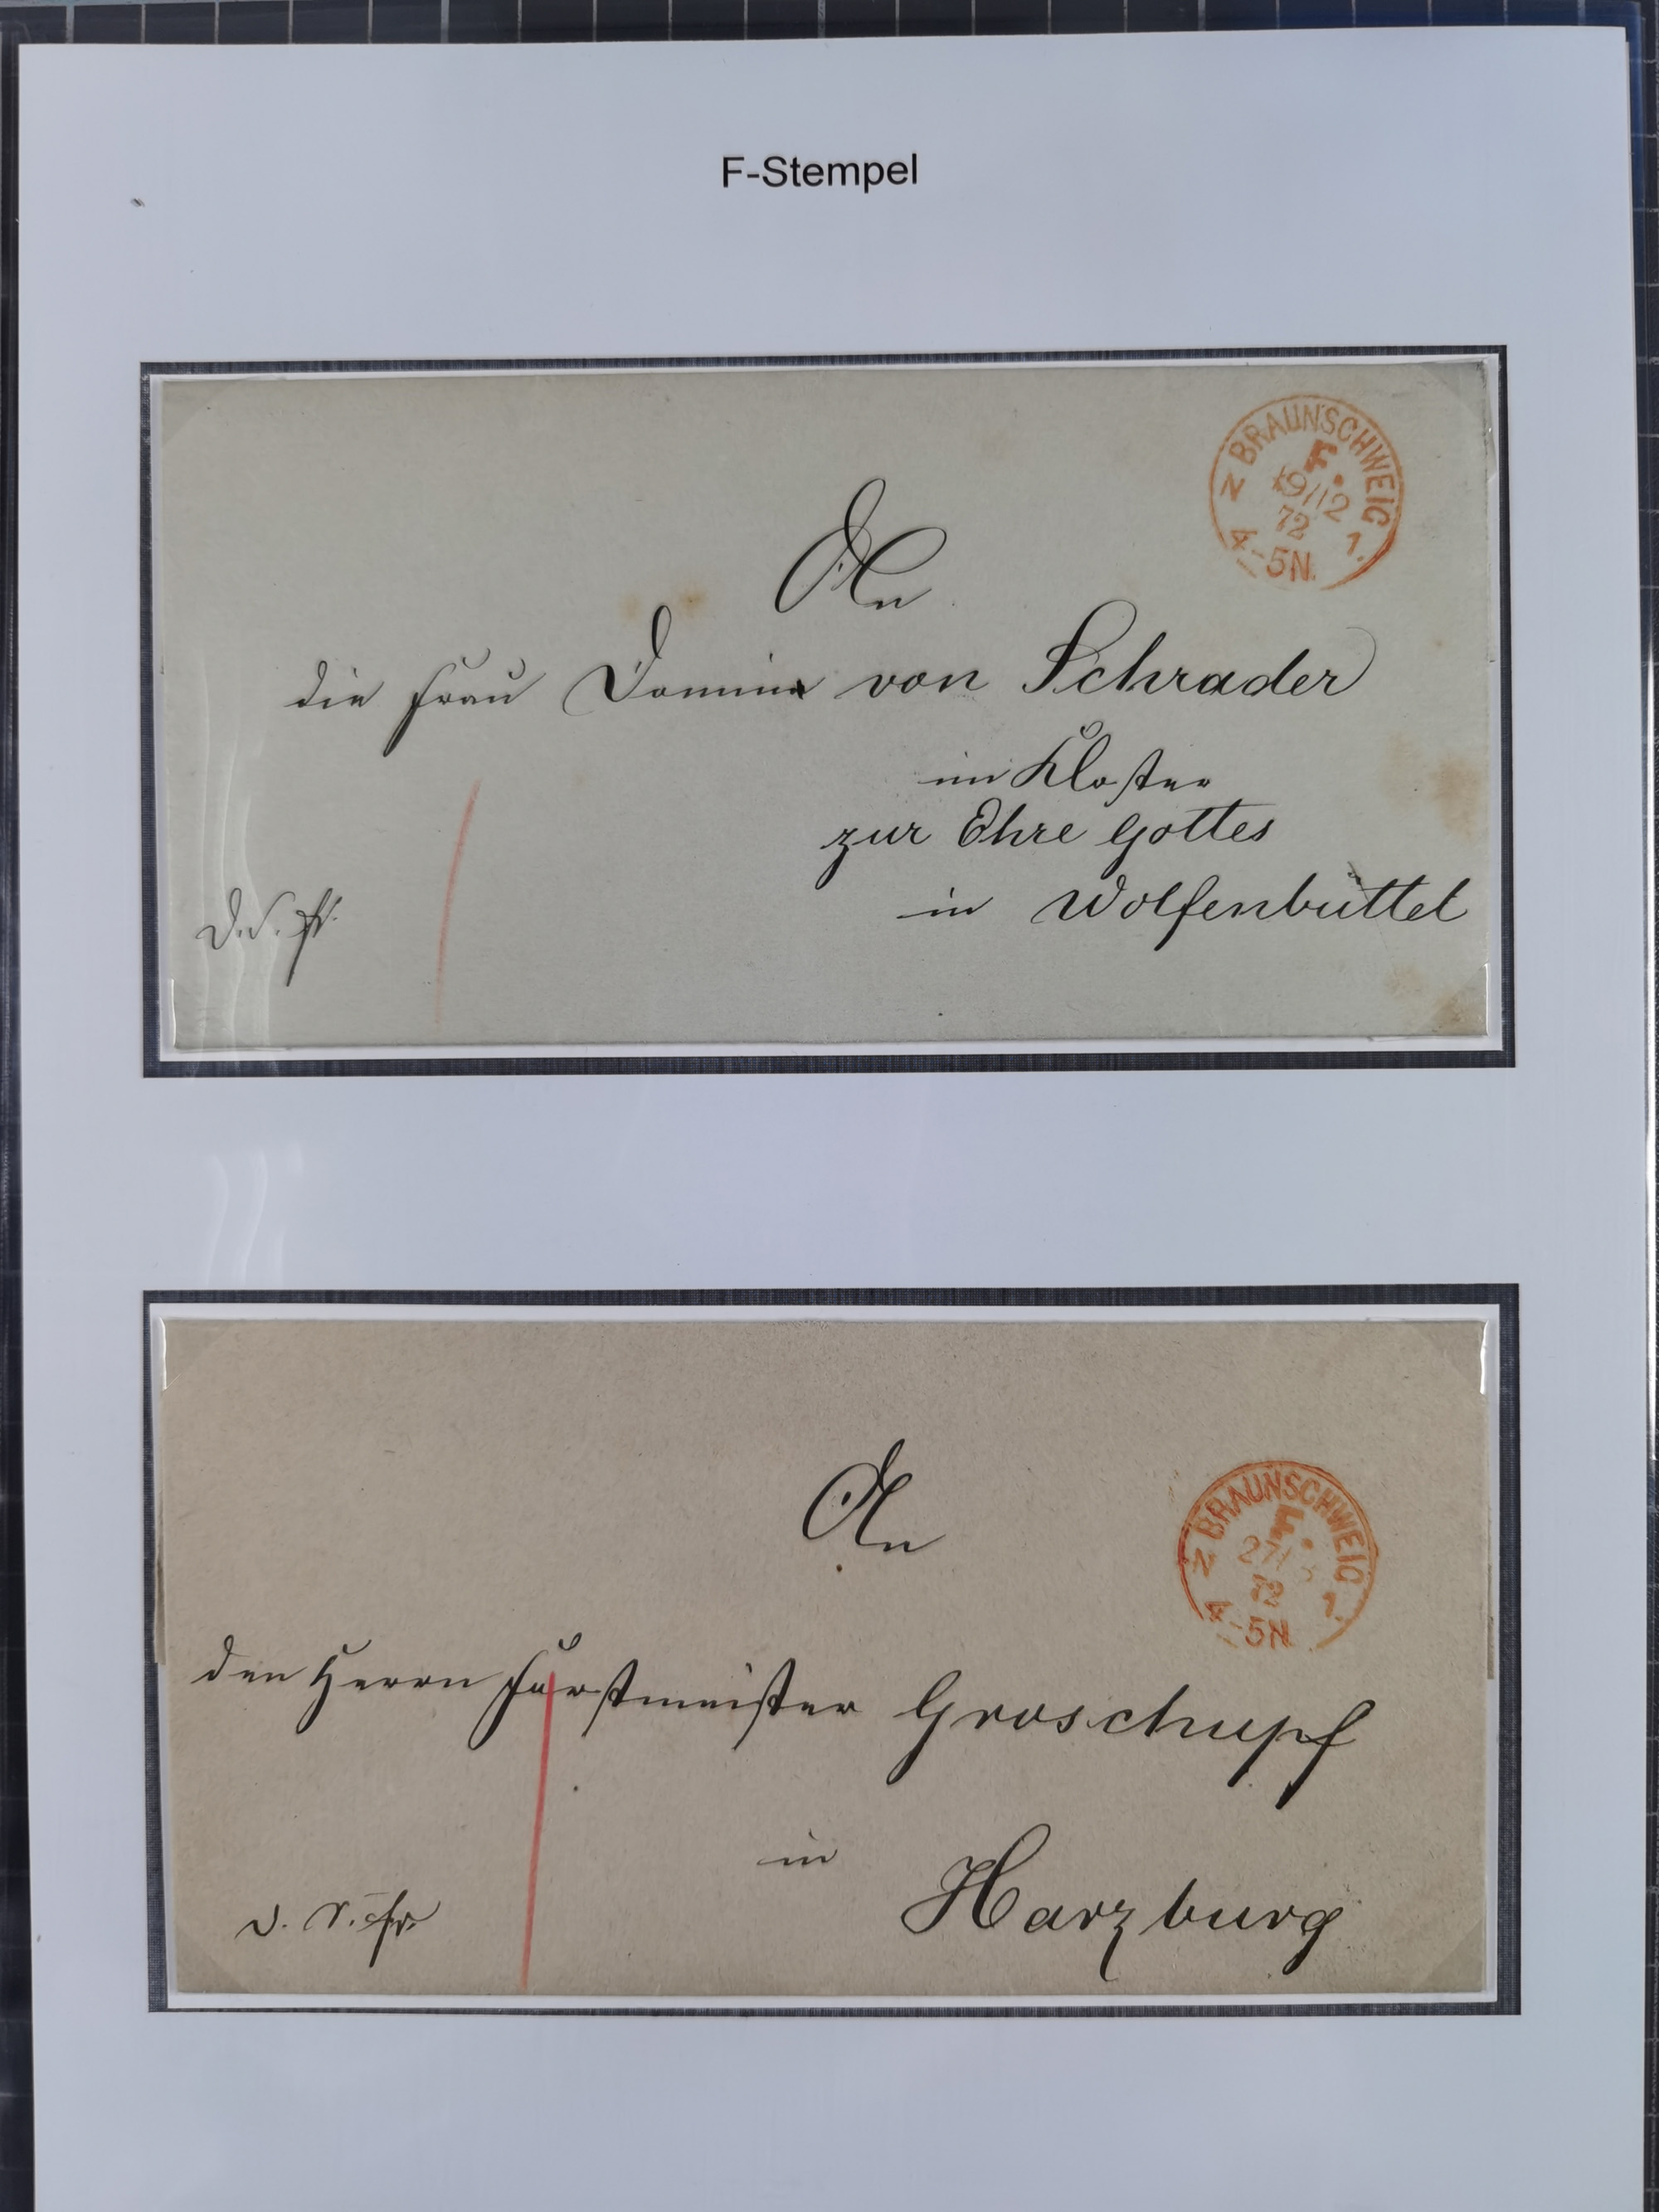 F-Stempel
BRAUNSCHWEIG
F.
N 19/12
72 1.
4-5N.
An
die Frau Domina von Schrader
im Kloster
zur Ehre Gottes
in Wolfenbüttel
BRAUNSCHWEIG
F.
N 27/
72 1.
4-5N
An
den Herrn Forstmeister Groschupf
in
Harzburg